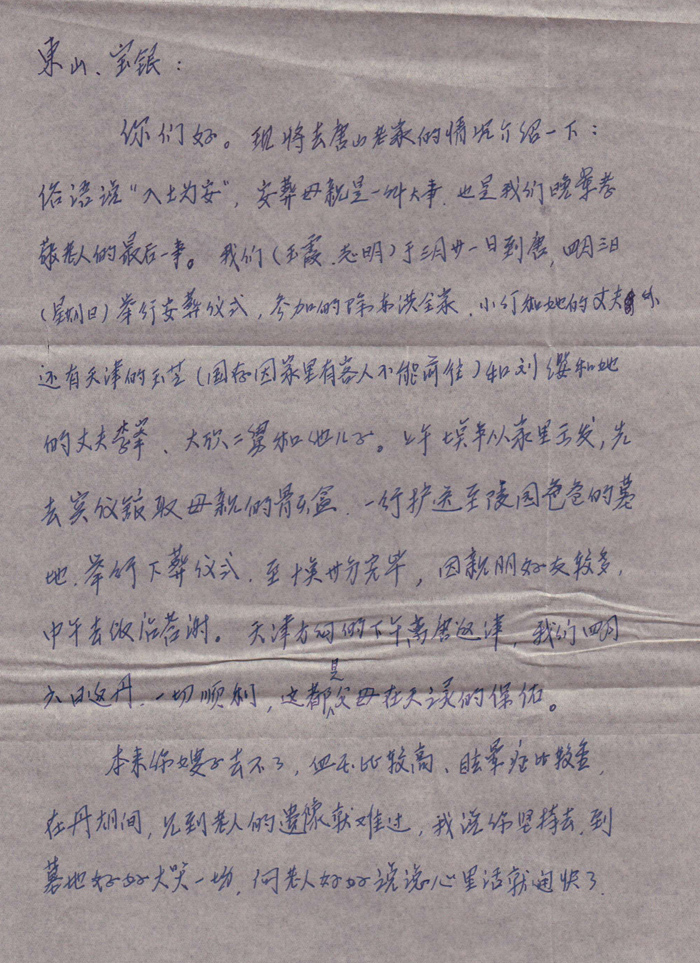 東山、宝银：
你们好。现将去唐山老家的情况介绍一下：
俗语说“入土为安”，安葬母亲是一件大事，也是我们晚辈孝
敬老人的最后一事。我们（玉霞、志明）于三月廿一日到唐，四月三日
（星期日）举行安葬仪式，参加的除布洪全家，小行和她的丈夫外
还有天津的玉芝（国存因家里有客人不能前往）和刘缨和她
的丈夫李峰、大欣二舅和他儿子。上午七点半从家里出发，先
去宾仪馆取母亲的骨灰盒，一行护送至陵园爸爸的墓
地，举行下葬仪式，至十点廿分完毕，因亲朋好友较多，
中午去饭店答谢。天津方面的下午离唐返津，我们四月
六日返丹，一切顺利，这都是父母在天之灵的保佑。
本来你嫂子去不了，血压比较高、眩晕症比较重，
在丹期间，见到老人的遗像就难过，我说你坚持去，到
墓地好好大哭一场，向老人好好说说心里话就通快了．